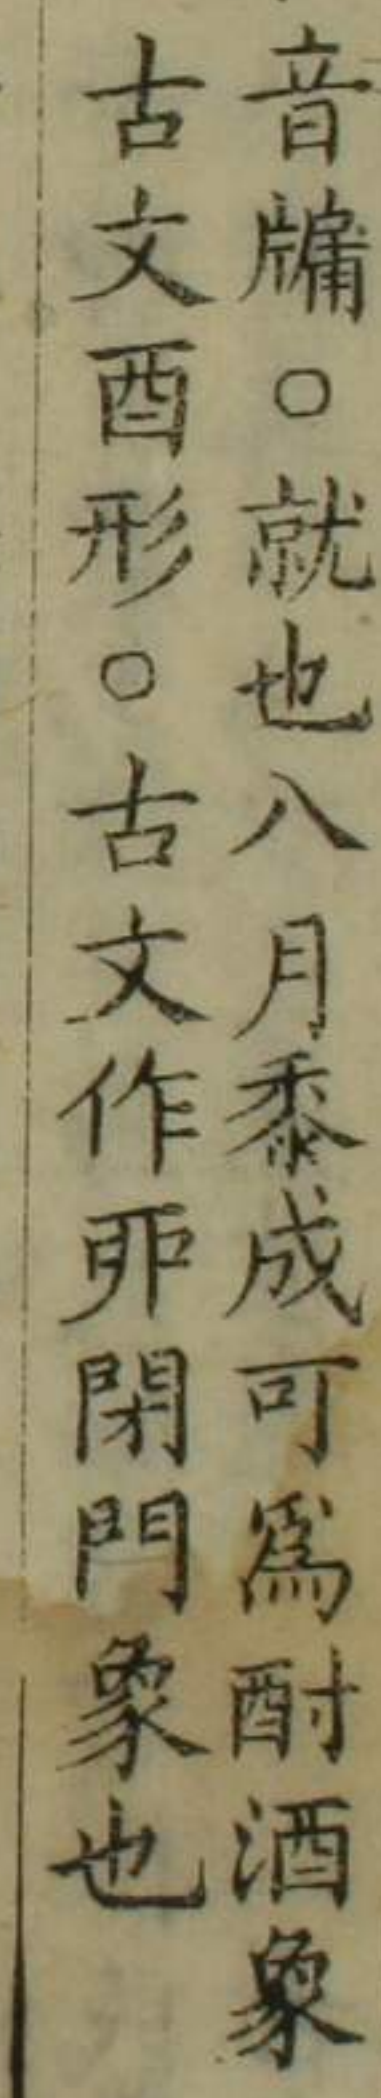 音牖○就也八月黍成可為酎酒象
古文酉形○古文作丣閉門象也